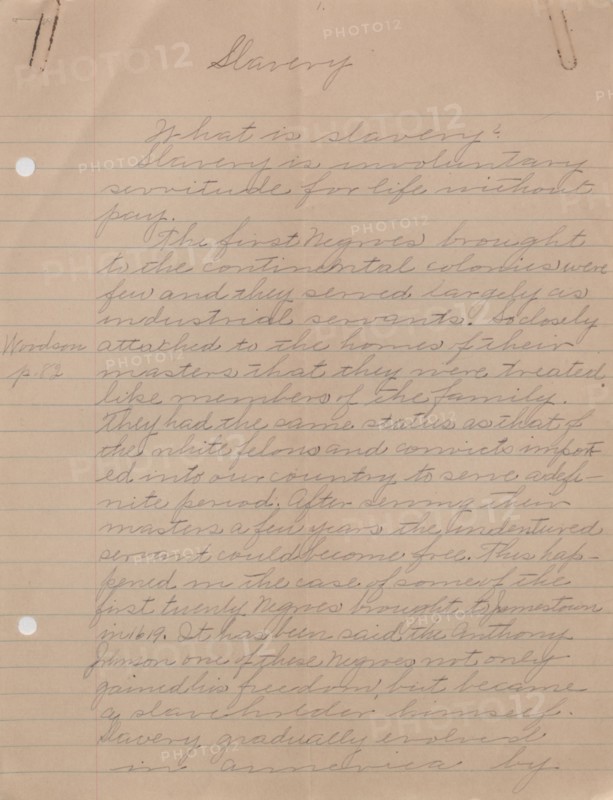 1.
Slavery
What is slavery?
Slavery is involuntary
servitude for life without
pay.
The first Negroes brought
to the continental colonies were
few and they served largely as
industrial servants. So closely
Woodson attached to the homes of their
p. 82 masters that they were treated
like members of the family.
They had the same status as that of
the white felons and convicts import-
ed into our country to serve a defi-
nite period. After serving their
masters a few years the indentured
servant could become free. This hap-
pened in the case of some of the
first twenty Negroes brought to Jamestown
in 1619. It has been said the Anthony
Johnson one of these Negroes not only
gained his freedom, but became
a slaveholder himself.
Slavery gradually evolved
in America by
PHOTO12